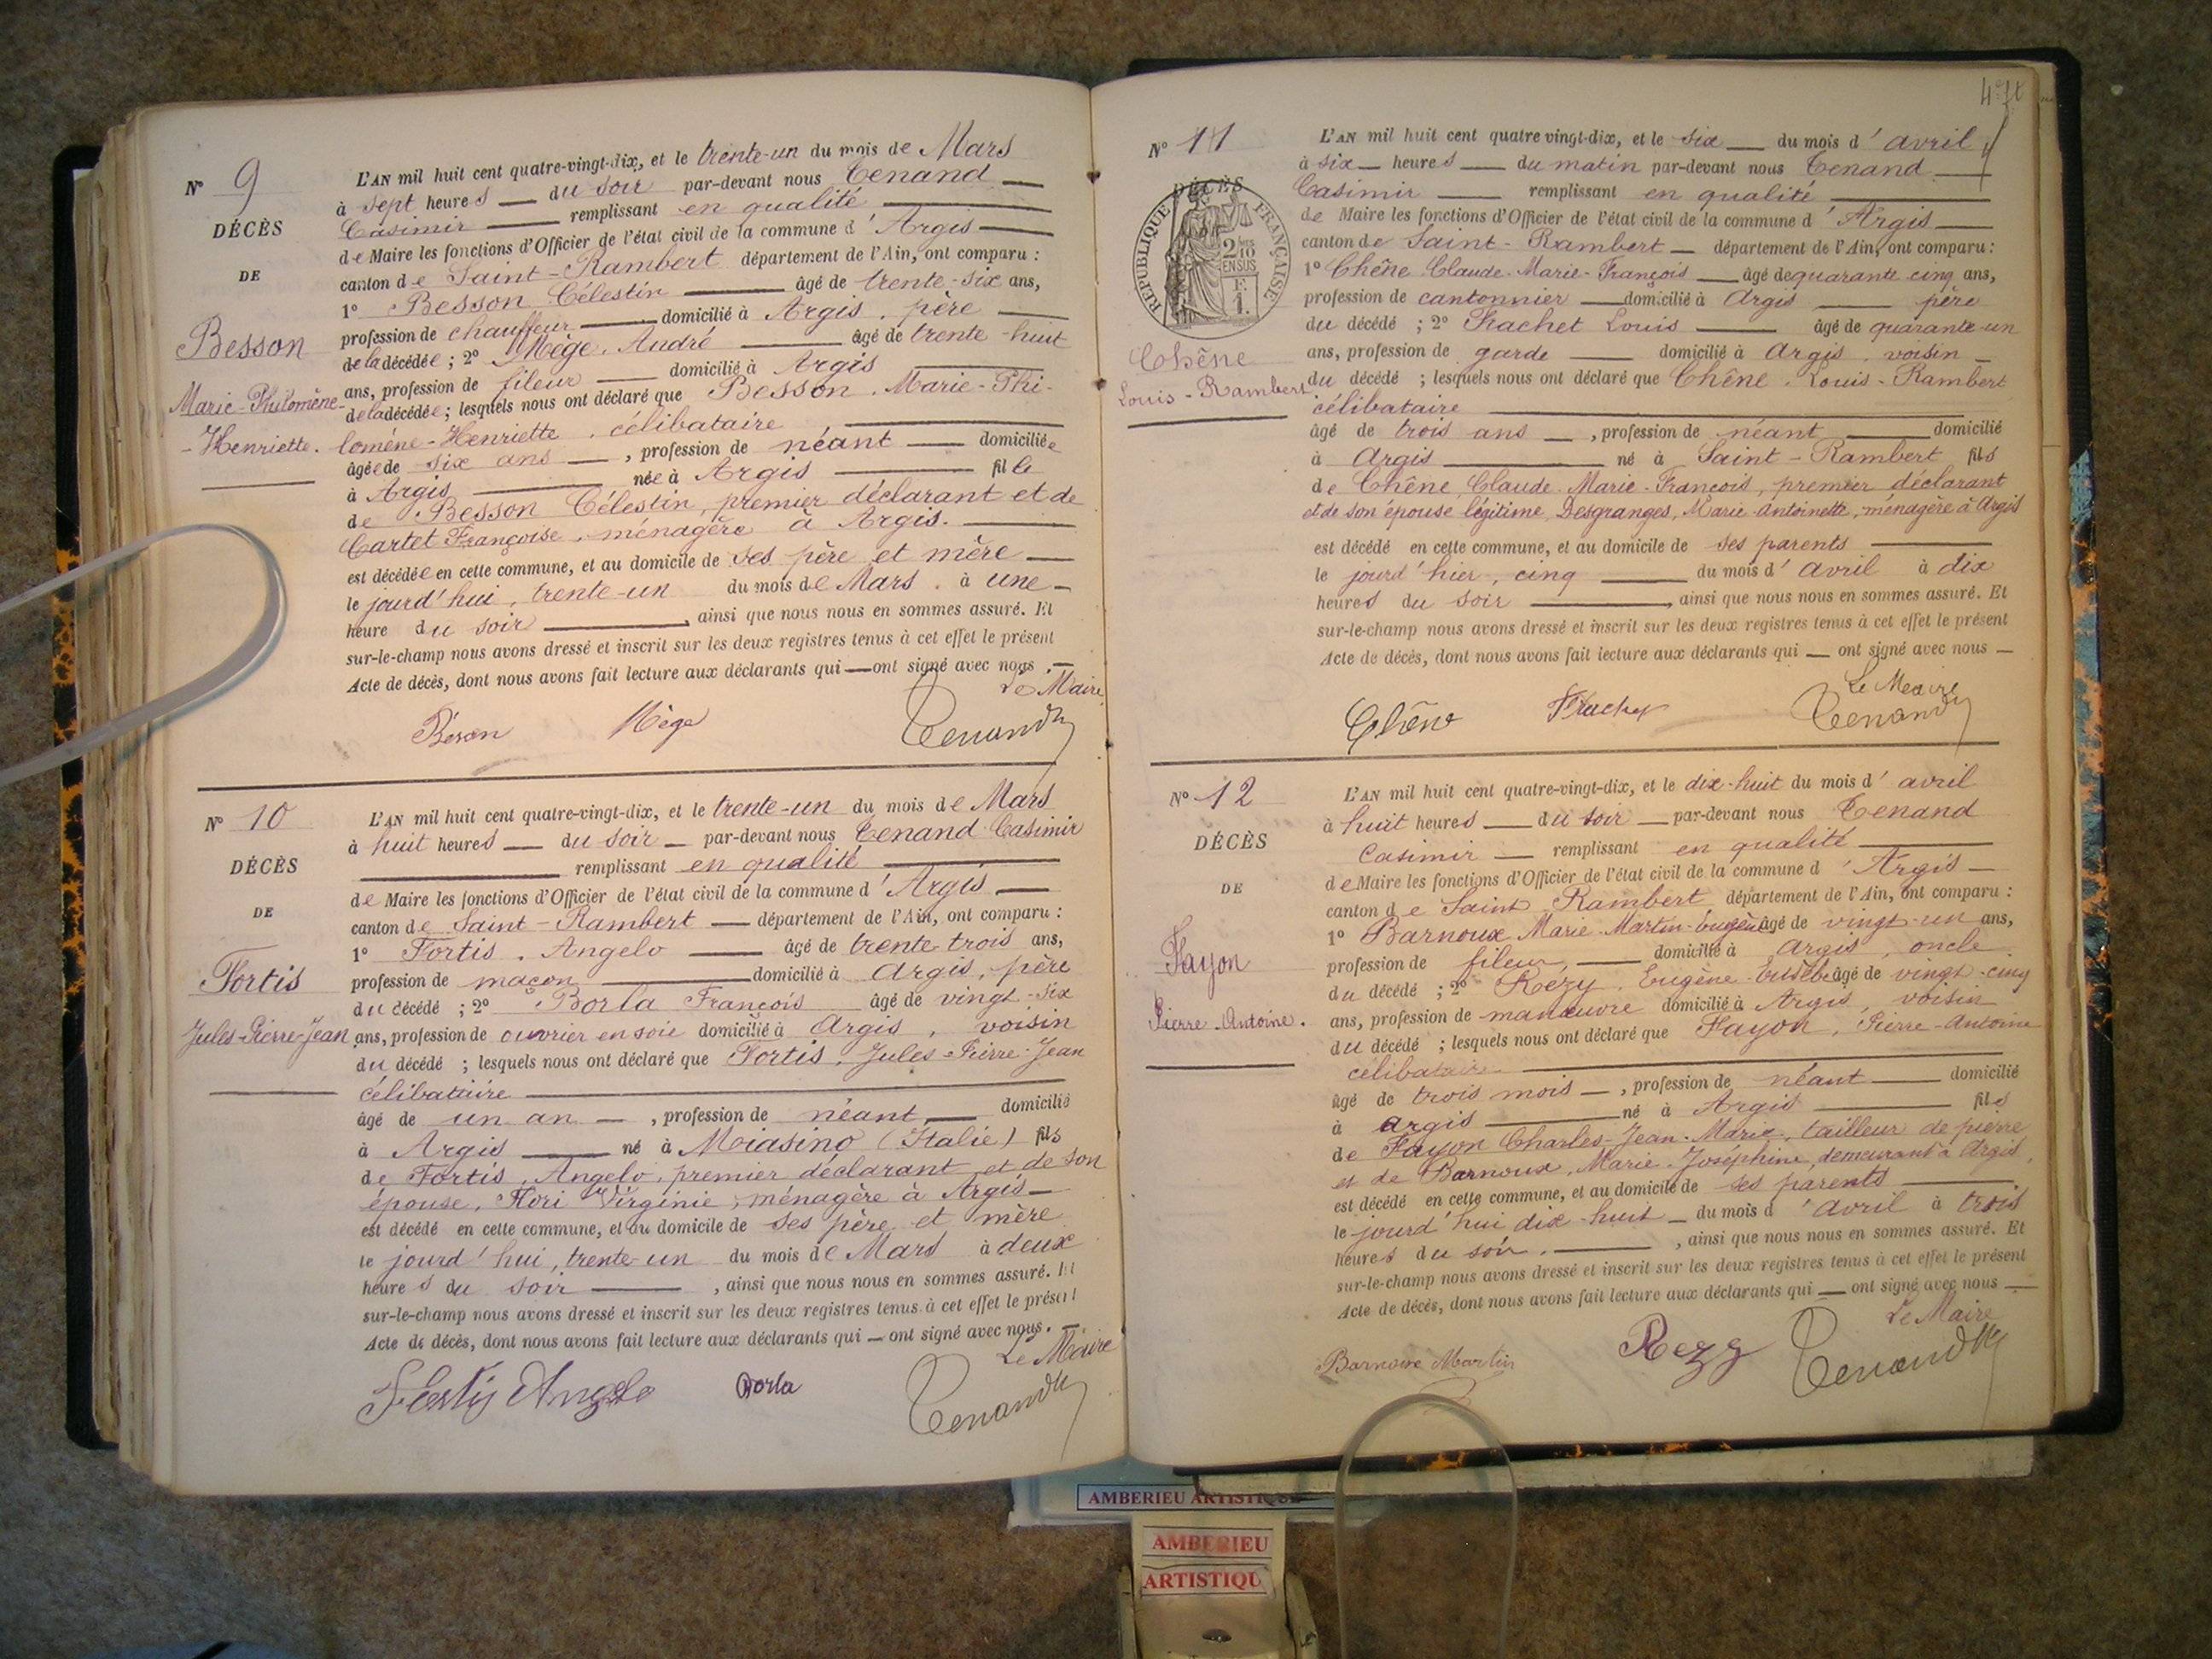 N° 9
DÉCÈS
DE
Besson
Marie-Philomène-
-Henriette.
L'AN mil huit cent quatre-vingt-dix, et le trente-un du mois de Mars
à sept heures du soir par-devant nous Tenand
Casimir remplissant en qualité
de Maire les fonctions d'Officier de l'état civil de la commune d'Argis
canton de Saint-Rambert département de l'Ain, ont comparu :
1° Besson Célestin âgé de trente-six ans,
profession de chauffeur domicilié à Argis, père
de la décédée ; 2° Mège, André âgé de trente-huit
ans, profession de fileur domicilié à Argis
de la décédée ; lesquels nous ont déclaré que Besson, Marie-Phi-
lomène-Henriette, célibataire
âgée de six ans , profession de néant domiciliée
à Argis née à Argis fille
de Besson Célestin, premier déclarant et de
Cartet Françoise, ménagère à Argis.
est décédée en cette commune, et au domicile de ses père et mère
le jourd'hui, trente-un du mois de Mars à une
heure du soir , ainsi que nous nous en sommes assuré. Et
sur-le-champ nous avons dressé et inscrit sur les deux registres tenus à cet effet le présent
Acte de décès, dont nous avons fait lecture aux déclarants qui ont signé avec nous.
Le Maire
Beson Mège Tenand
N° 10
DÉCÈS
DE
Fortis
Jules-Pierre-Jean
L'AN mil huit cent quatre-vingt-dix, et le trente-un du mois de Mars
à huit heures du soir par-devant nous Tenand Casimir
remplissant en qualité
de Maire les fonctions d'Officier de l'état civil de la commune d'Argis
canton de Saint-Rambert département de l'Ain, ont comparu :
1° Fortis, Angelo âgé de trente-trois ans,
profession de maçon domicilié à Argis, père
du décédé ; 2° Borla François âgé de vingt-six
ans, profession de ouvrier en soie domicilié à Argis, voisin
du décédé ; lesquels nous ont déclaré que Fortis, Jules-Pierre-Jean
célibataire
âgé de un an , profession de néant domicilié
à Argis né à Miasino (Italie) fils
de Fortis, Angelo, premier déclarant et de son
épouse, Flori Virginie, ménagère à Argis
est décédé en cette commune, et au domicile de ses père et mère
le jourd'hui, trente-un du mois de Mars à deux
heures du soir , ainsi que nous nous en sommes assuré. Et
sur-le-champ nous avons dressé et inscrit sur les deux registres tenus à cet effet le présent
Acte de décès, dont nous avons fait lecture aux déclarants qui ont signé avec nous.
Le Maire
Angelo Borla Tenand
N° 11
DÉCÈS
RÉPUBLIQUE FRANÇAISE
2/10 EN SUS
F. 1.
Chêne
Louis-Rambert
L'AN mil huit cent quatre vingt-dix, et le six du mois d'avril
à six heures du matin par-devant nous Tenand
Casimir remplissant en qualité
de Maire les fonctions d'Officier de l'état civil de la commune d'Argis
canton de Saint-Rambert département de l'Ain, ont comparu :
1° Chêne Claude-Marie-François âgé de quarante cinq ans,
profession de cantonnier domicilié à Argis père
du décédé ; 2° Frachet Louis âgé de quarante-un
ans, profession de garde domicilié à Argis, voisin
du décédé ; lesquels nous ont déclaré que Chêne, Louis-Rambert
célibataire
âgé de trois ans , profession de néant domicilié
à Argis né à Saint-Rambert fils
de Chêne, Claude-Marie-François, premier déclarant
et de son épouse légitime, Desgranges, Marie-Antoinette, ménagère à Argis
est décédé en cette commune, et au domicile de ses parents
le jourd'hier, cinq du mois d'avril à dix
heures du soir , ainsi que nous nous en sommes assuré. Et
sur-le-champ nous avons dressé et inscrit sur les deux registres tenus à cet effet le présent
Acte de décès, dont nous avons fait lecture aux déclarants qui ont signé avec nous
Le Maire
Chêne Frachet Tenand
N° 12
DÉCÈS
DE
Fayon
Pierre-Antoine.
L'AN mil huit cent quatre-vingt-dix, et le dix-huit du mois d'avril
à huit heures du soir par-devant nous Tenand
Casimir remplissant en qualité
de Maire les fonctions d'Officier de l'état civil de la commune d'Argis
canton de Saint Rambert département de l'Ain, ont comparu :
1° Barnoux Marie-Martin-Eugène âgé de vingt-un ans,
profession de fileur, domicilié à Argis, oncle
du décédé ; 2° Rezy, Eugène-Eusèbe âgé de vingt-cinq
ans, profession de manœuvre domicilié à Argis, voisin
du décédé ; lesquels nous ont déclaré que Fayon, Pierre-Antoine
célibataire
âgé de trois mois , profession de néant domicilié
à Argis né à Argis fils
de Fayon Charles-Jean-Marie, tailleur de pierre
et de Barnoux, Marie-Joséphine, demeurant à Argis,
est décédé en cette commune, et au domicile de ses parents
le jourd'hui dix-huit du mois d'avril à trois
heures du soir. , ainsi que nous nous en sommes assuré. Et
sur-le-champ nous avons dressé et inscrit sur les deux registres tenus à cet effet le présent
Acte de décès, dont nous avons fait lecture aux déclarants qui ont signé avec nous
Le Maire
Martin Rezy Tenand
AMBERIEU ARTISTIQUE
AMBERIEU
ARTISTIQU